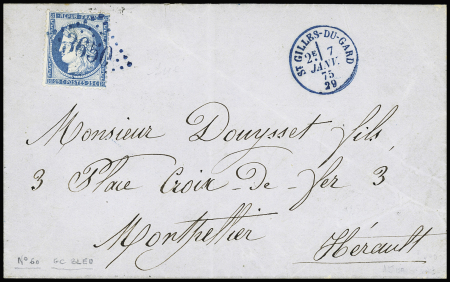 REPUB. FRANC.
3620
25 C POSTES 25 C
ST GILLES-DU-GARD
2E 7
JANV.
75
29
Monsieur Douysset fils
3 Place Croix-de-fer 3
Montpellier
Hérault
N° 60 GC BLEU